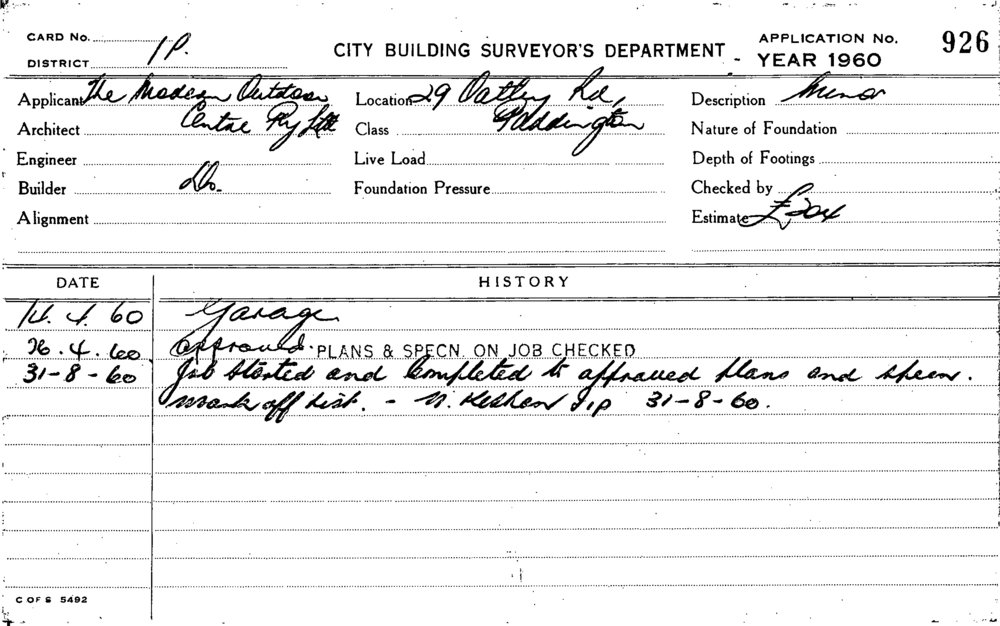 CARD No.
DISTRICT 1P.
CITY BUILDING SURVEYOR'S DEPARTMENT - APPLICATION No. 926
YEAR 1960
Applicant The Modern Outdoor Location 29 Oatley Rd, Description Minor
Architect Centre Pty Ltd Class Paddington Nature of Foundation
Engineer Live Load Depth of Footings
Builder Do. Foundation Pressure Checked by
Alignment Estimate £204
DATE HISTORY
14. 4. 60 Garage
26. 4. 60. Approved. PLANS & SPECN. ON JOB CHECKED
31-8-60 Job started and Completed to approved plans and specn.
Mark off list. - 31-8-60.
C OF S 5492